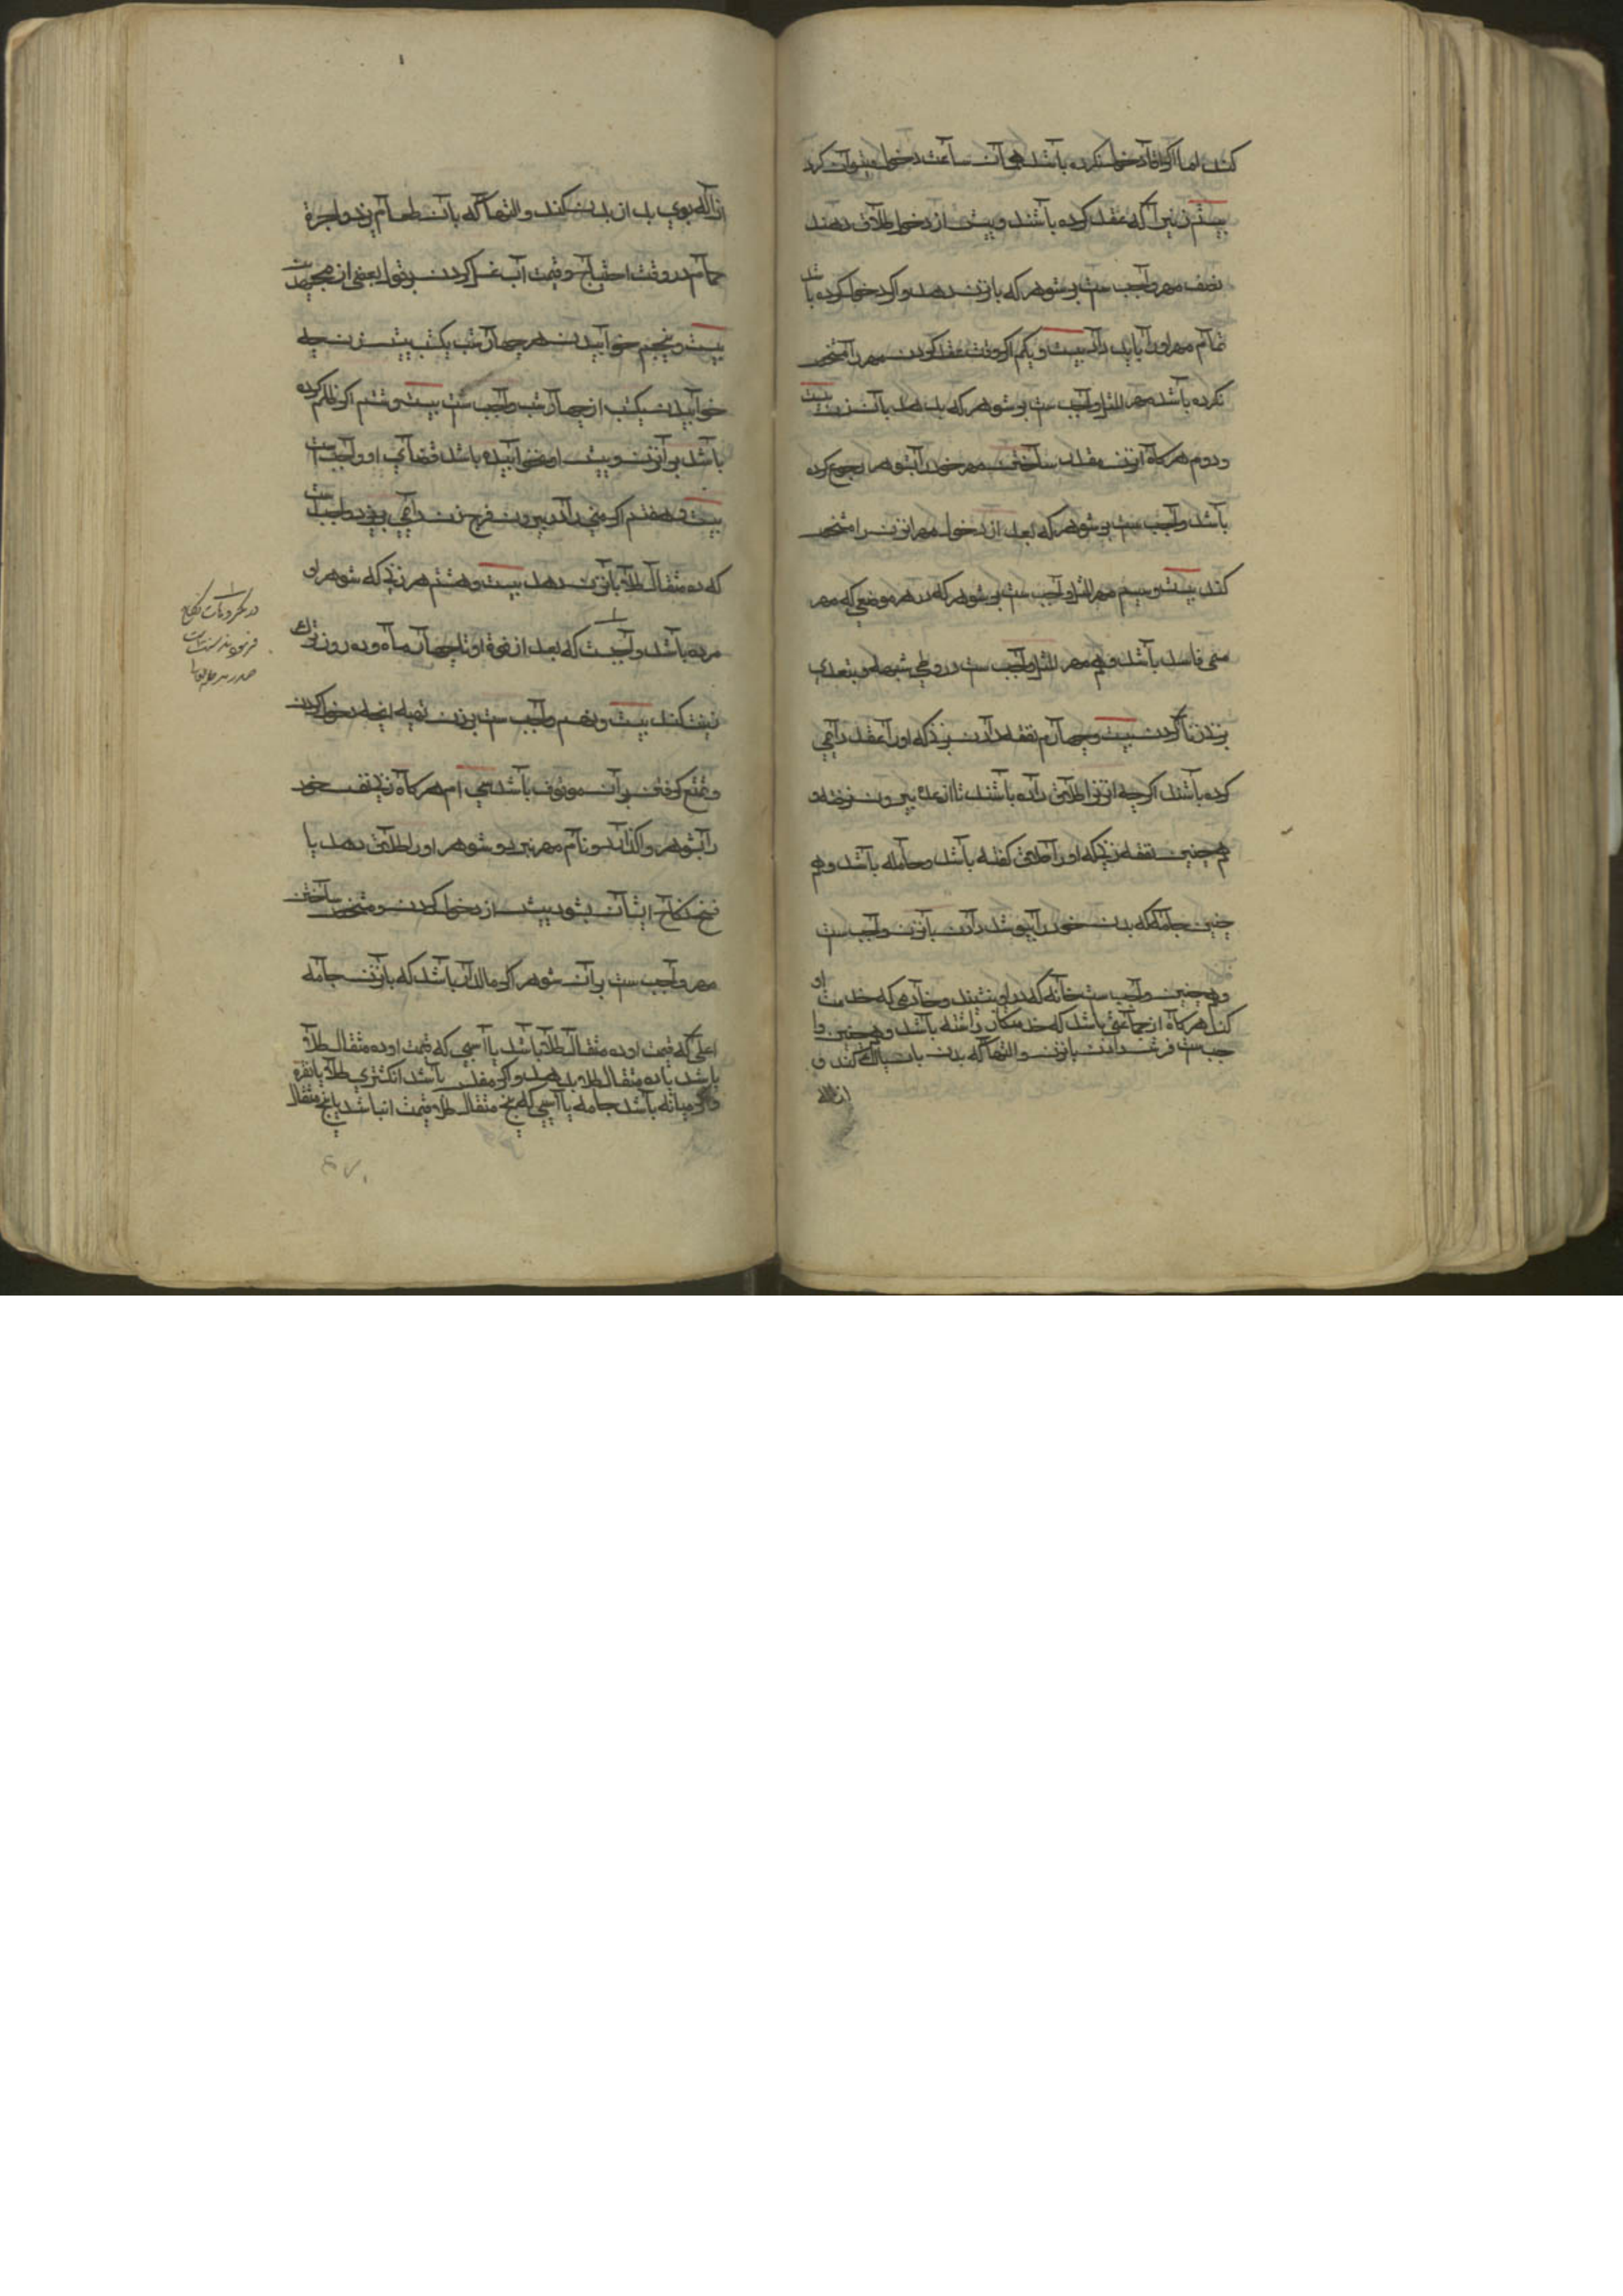 کند اما اکر اورا دخول نکرده باشد هم آن ساعت دخول میتوان کرد
بیستم زنیرا که عقد کرده باشند و پیش از دخول طلاق دهند
نصف مهر واجب ست بر شوهر که بازن دهد و اکر دخول کرده باشد
تمام مهر اورا باید داد بیست و یکم اکر وقت عقد کردن مهر را مشخص
نکرده باشد مهر المثل واجب ست بر شوهر که بدهد بآن زن بیست
و دوم هر کاه آن زن مقدار ساختن مهر خود را بشوهر رجوع کرده
باشد واجب ست بر شوهر که بعد از دخول مهر آنزن را مشخص
کند بیست و سیم مهر المثل واجب ست بر شوهر که در هر موضعی که مهر
مسمی فاسد باشد و هم مهر المثل واجب ست در وطی شبهه و بتعدی
بزن زنا کردن بیست و چهارم نفقه دادن بزنی که اورا عقد دایمی
کرده باشند اکرچه آنزنرا طلاق داده باشند تا از عده بیرون نرفته و
هم چنین نفقه زنی که اورا طلاق کفته باشد و حامله باشد و هم
چنین جامه که بدن خود را بپوشد دادن بآنزن واجب ست
و همچنین واجب ست خانه که در او نشیند و خادمی که خدمت او
کند هر کاه از جماعتی باشد که خدمتکار داشته باشد و همچنین وا
جب ست فرش دادن بآنزن و التها که بدن بان پاک کند و
ازاله
ازاله بوی بد از بدن کند و التها که بآن طعام پزد و اجرة
حمام در وقت احتیاج و قیمت آب غسل کردن بر قول بعضی از مجتهدین
بیست و پنجم خوابیدن هر چهار شب یکشب پیش زن چه
خوابیدن یکشب از چهار شب واجب ست بیست و ششم اکر ظلم کرده
باشد بر آنزن و پیش او نخوابیده باشد قضای او واجب ست
بیست و هفتم اکر منی را در بیرون فرج زن دایمی بریزد واجب ست
که ده مثقال طلا بآنزن دهد بیست و هشتم هر زنی که شوهر او
مرده باشد واجبست که بعد از فوت او تا چهار ماه و ده روز ترک
زینت کند بیست و نهم واجب ست بر زن تهیه آنچه دخول کردن
و تمتع کرفتن بر آن موقوف باشد سی ام هر کاه زنی نفس خود
را بشوهر واکذارد و نام مهر نبرد و شوهر اورا طلاق دهد یا
فسخ نکاح ایشان بشود پیش از دخول کردن و مشخص ساختن
مهر واجب ست بر آن شوهر اکر مالدار باشد که بآنزن جامه
اعلی که قیمت او ده مثقال طلا باشد یا اسبی که قیمت او ده مثقال طلا
باشد یا ده مثقال طلا بدهد و اکر مفلس باشد انکشتری طلا یا نقره
و اکر میانه باشد جامه یا اسبی که پنج مثقال طلا قیمت انها باشد یا پنج مثقال